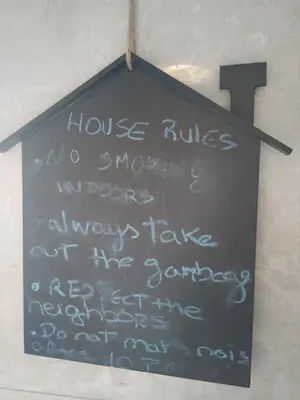 HOUSE RULES
• NO SMOKING
INDOORS
- always take
out the garbage
• RESPECT the
neighbors
• Do not make nois
after 10